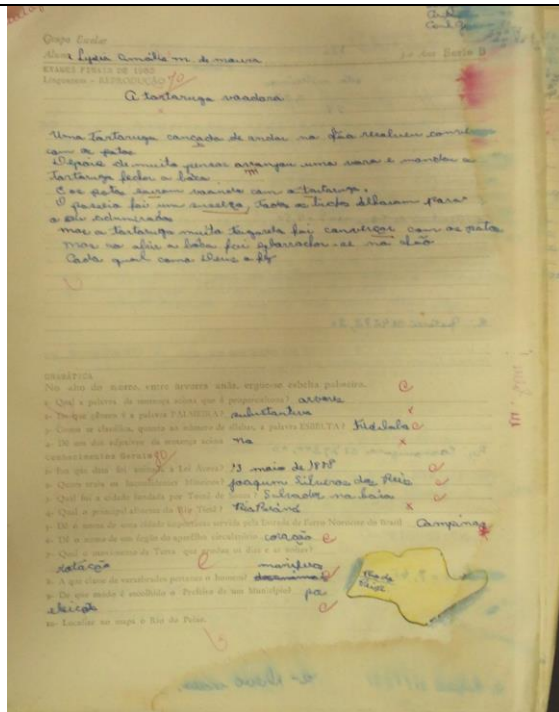 Grupo Escolar
Aluna Lydia Amélia m. de moura 3.o Ano Serie B
EXAMES FINAIS DE 1960
Linguagem - REPRODUÇÃO 70
A tartaruga voadora
Uma tartaruga cançada de andar no chão resolveu
com os patos
Depois de muito pensar arranjou uma vara e mandou a
tartaruga fechar a bôca
E os patos sairam voando com a tartaruga.
O passeio foi um todos os bichos olhavam para
o céu admirados
mas a tartaruga muito tagarela foi converçar com os patos
mas ao abrir a bôca foi esborrachar-se no chão
Cada qual como Deus o fêz
GRAMÁTICA
No alto do morro, entre árvores anãs, ergue-se esbelta palmeira.
1- Qual a palavra da sentença acima que é proparoxítona? arvores
2- De que gênero é a palavra PALMEIRA? substantivo
3- Como se classifica, quanto ao número de sílabas, a palavra ESBELTA? trissilaba
4- Dê um dos adjetivos da sentença acima no
Conhecimentos Gerais 80
1- Em que dia foi assinada a Lei Áurea? 13 maio de 1888
2- Quem traiu os Inconfidentes Mineiros? joaquim Silverio dos Reis
3- Qual foi a cidade fundada por Tomé de Souza? Salvador na baía
4- Qual o principal afluente do Rio Tietê? Rio Paraná
5- Dê o nome de uma cidade importante servida pela Estrada de Ferro Noroeste do Brasil Campinas
6- Dê o nome de um órgão do aparelho circulatório coração
7- Qual o movimento da Terra que produz os dias e as noites?
rotação
8- A que classe de vertebrados pertence o homem? mamíferos
9- De que modo é escolhido o Prefeito de um Município? por
eleição
10- Localize no mapa o Rio do Peixe.
Rio do
Peixe